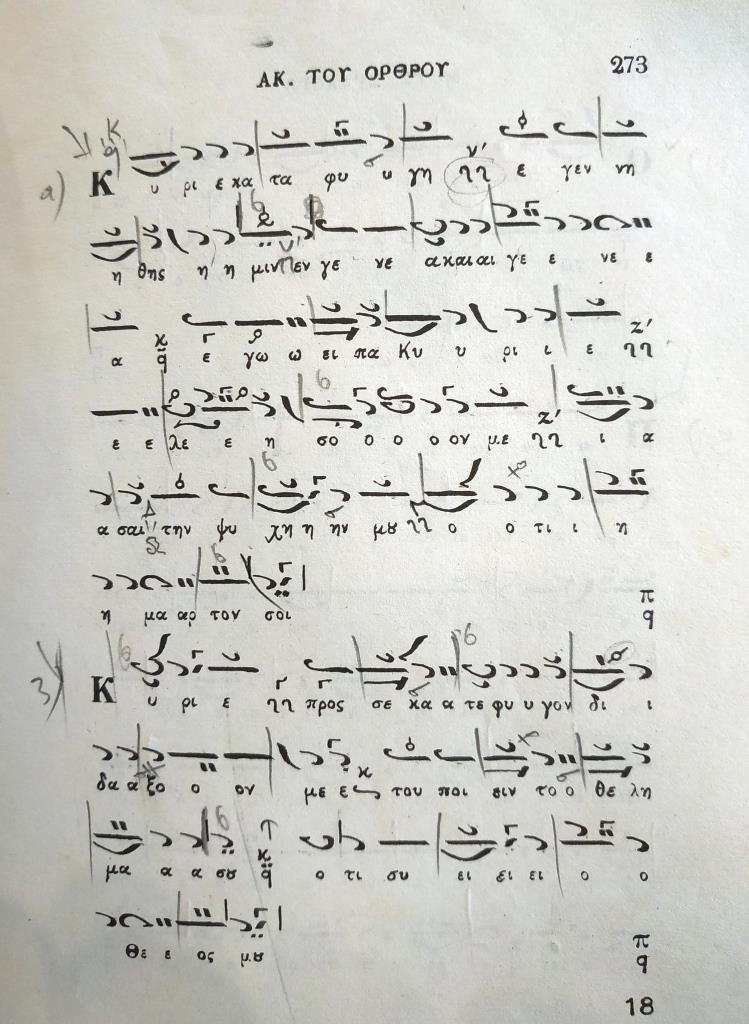 ΑΚ. ΤΟΥ ΟΡΘΡΟΥ 273
Κ υ ρι ε κα τα φυ υ γη ε γεν νη
η θης η η μιν εν γε νε α και αι γε ε νε ε
α ε γω ω ει πα Κυ υ ρι ι ε
ε ε λε ε η σο ο ο ο ον με ι α
α σαι την ψυ χη η ην μȣ ο ο τι ι η
η μα αρ τον σοι
π
q
3)
Κ υ ρι ε προς σε κα α τε φυ υ γον δι ι
δα α ξο ο ον με ε του ποι ειν το ο θε λη
μα α α σȣ ο τι συ ει ει ει ο ο
Θε ε ος μȣ
π
q
18